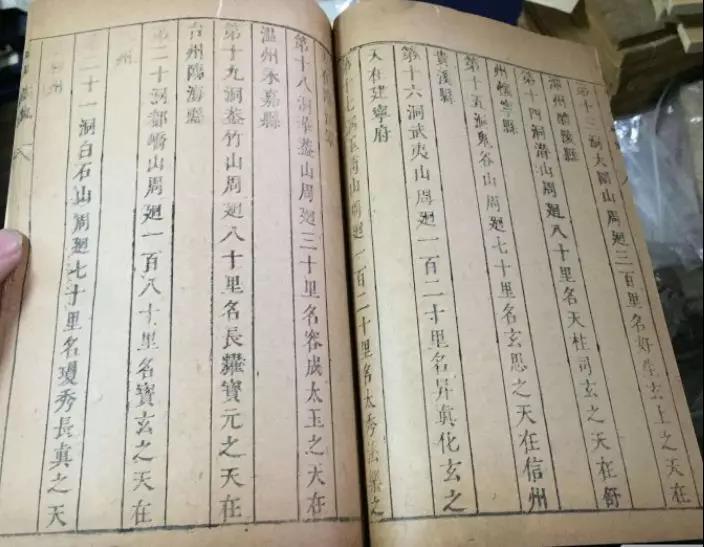 第十三洞大圍山周廻三百里名好生玄上之天在
潭州醴陵縣
第十四洞潛山周廻八十里名天柱司玄之天在舒
州懷寧縣
第十五洞鬼谷山周廻七十里名玄思之天在信州
貴溪縣
第十六洞武夷山周廻一百二十里名昇真化玄之
天在建寧府
第十七洞玉笥山周廻一百二十里名太秀法樂之
天在
第十八洞華蓋山周廻三十里名容成太玉之天在
溫州永嘉縣
第十九洞蓋竹山周廻八十里名長耀寶元之天在
台州臨海縣
第二十洞都嶠山周廻一百八十里名寶玄之天在
州
二十一洞白石山周廻七十里名瓊秀長真之天